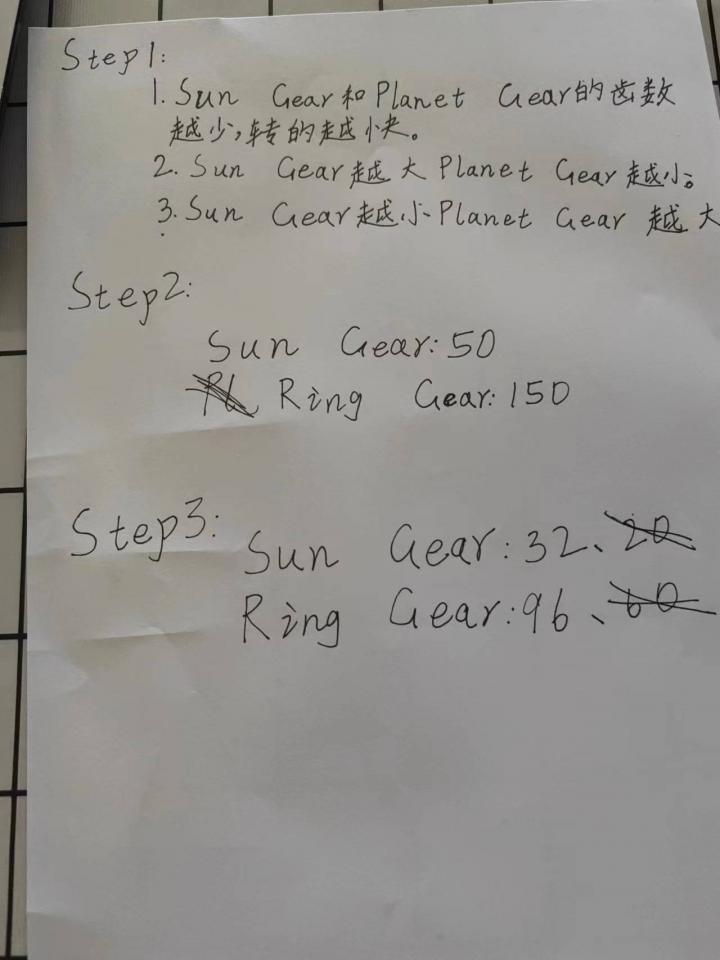 Step1:
1. Sun Gear和Planet Gear的齿数
越少,转的越快。
2. Sun Gear越大Planet Gear越小。
3. Sun Gear越小Planet Gear越大
Step2:
Sun Gear: 50
Ring Gear: 150
Step3:
Sun Gear: 32、20
Ring Gear: 96、60